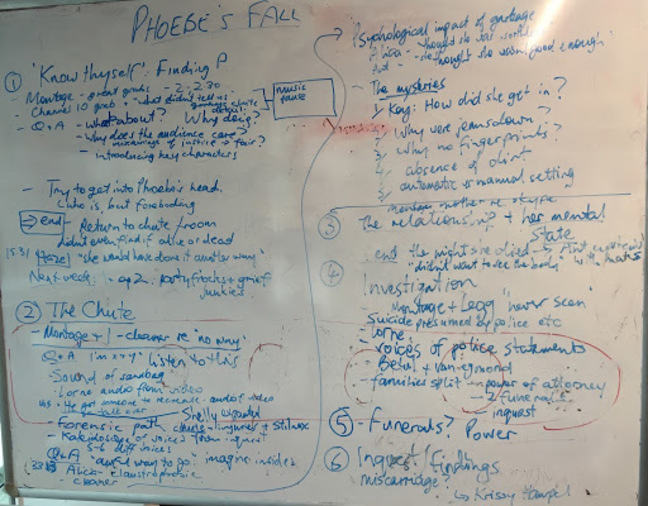 PHOEBE'S FALL
① 'Know thyself': Finding P
- Montage - great grabs - 2-2.30
- Channel 10 grab - what didn't tell us
garbage chute details
- Q+A - what about? Why doing?
music pause
- Why does the audience care?
miscarriage of justice → fair?
- introducing key characters
- Try to get into Phoebe's head.
Who is, but foreboding
⇒ end - Return to chute/room
didn't even find if alive or dead
"she would have done it another way"
Next week: - ep 2. party frocks + grief
junkies
② The Chute
- Montage + 1 - cleaner re "no way"
Q+A I'm x + y listen to this
- Sound of sandbag
- Lorne audio from video
- He got someone to recreate - audio of video
- Forensic path - injuries + Stilnox
- Kaleidoscope of voices from inquest
5-6 diff voices
Q+A "awful way to go" imagine insides
Alice - claustrophobic
- cleaner
Psychological impact of garbage
- she thought she wasn't good enough
- The mysteries
1/ Key: How did she get in?
2/ Why were jeans down?
3/ Why no fingerprints?
4/ absence of dirt
5/ automatic vs manual setting
③ The relationship + her mental
State
end the night she died →
"didn't want to see the body"
④ Investigation
- Montage + Legg "never seen"
Suicide presumed by police etc
- Lorne
- voices of police statements
- Beta + Van-egmond
- families split - power of attorney
- 2 funerals
- inquest
⑤ - Funerals? Power
⑥ Inquest/findings
miscarriage?
↳ Krissy